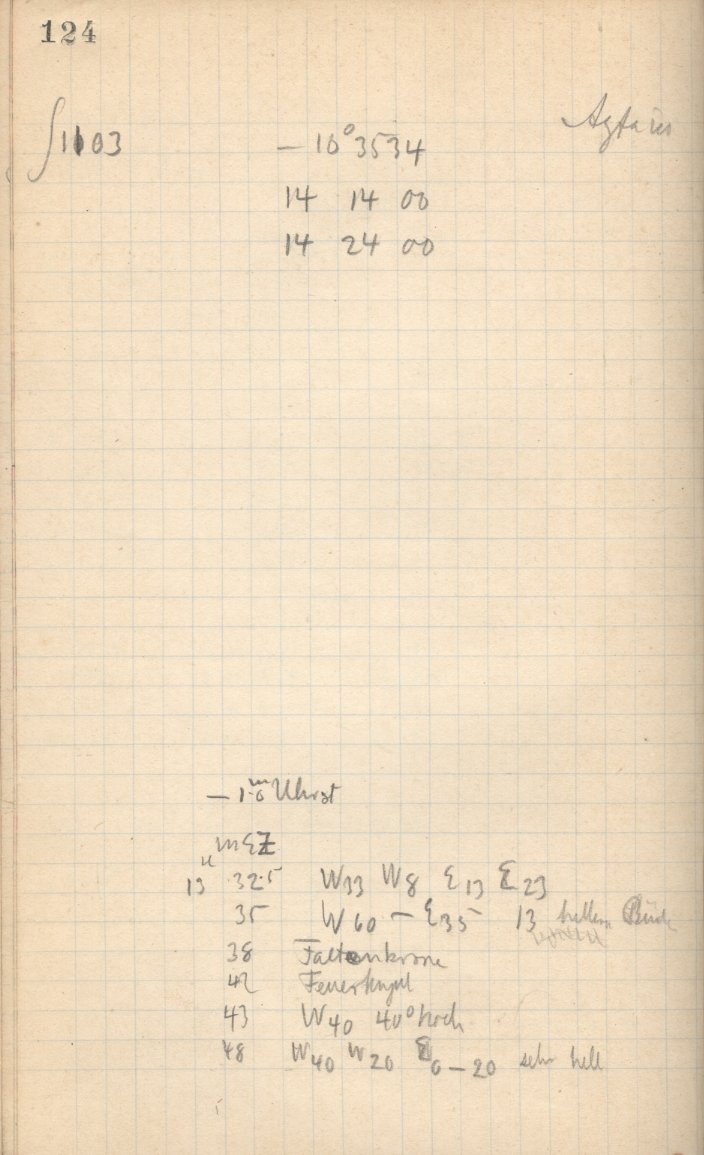 124
∫1103 − 10° 35 34
14 14 00
14 24 00
− 1.6ᵐ Uhrst
MEZ
13ᵘ 32.5 W33 W8 E13 E23
35 W60 − E35 13
38 Faltenkrone
42 Feuerkugel
43 W40 40° hoch
48 W40 W20 E0 − 20 sehr hell